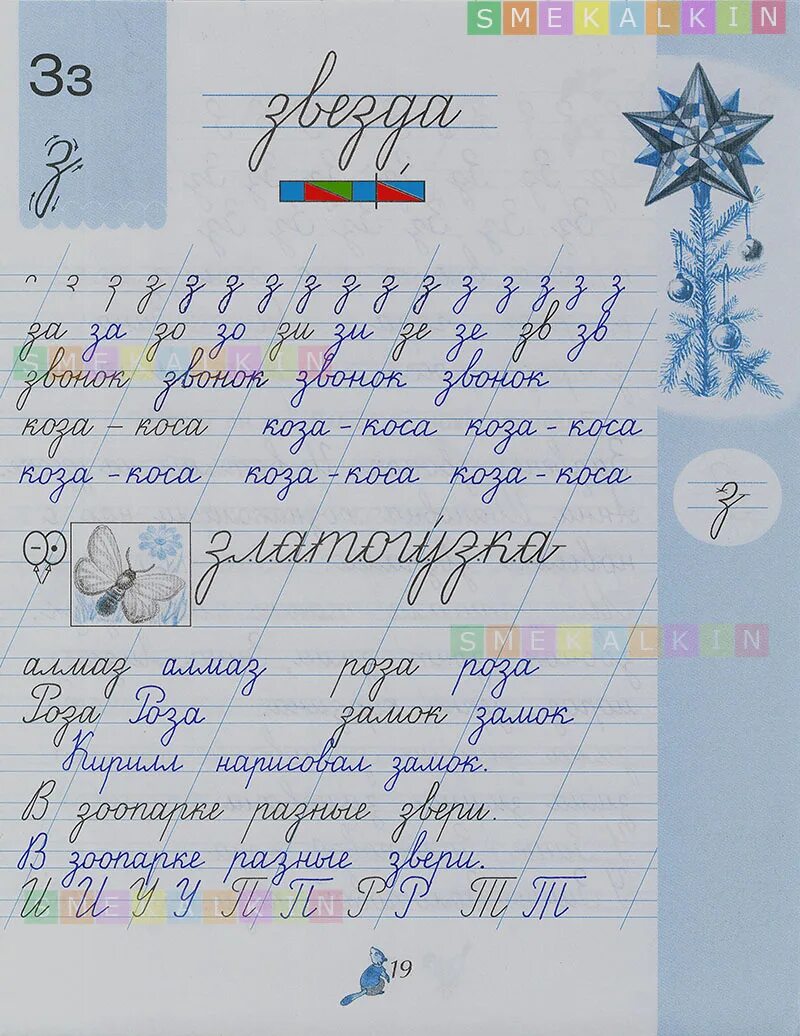 SMEKALKIN
Зз
звезда
з
з з з з з з з з з з з з з з
за за зо зо зи зи зе зе зв зв
SMEKALKIN
звонок звонок звонок звонок
коза – коса коза – коса коза – коса
коза – коса коза – коса коза – коса
з
златогузка
SMEKALKIN
алмаз алмаз роза роза
Роза Роза замок замок
Кирилл нарисовал замок.
В зоопарке разные звери.
В зоопарке разные звери.
И И У У П П Р Р Т Т
SMEKALKIN
19